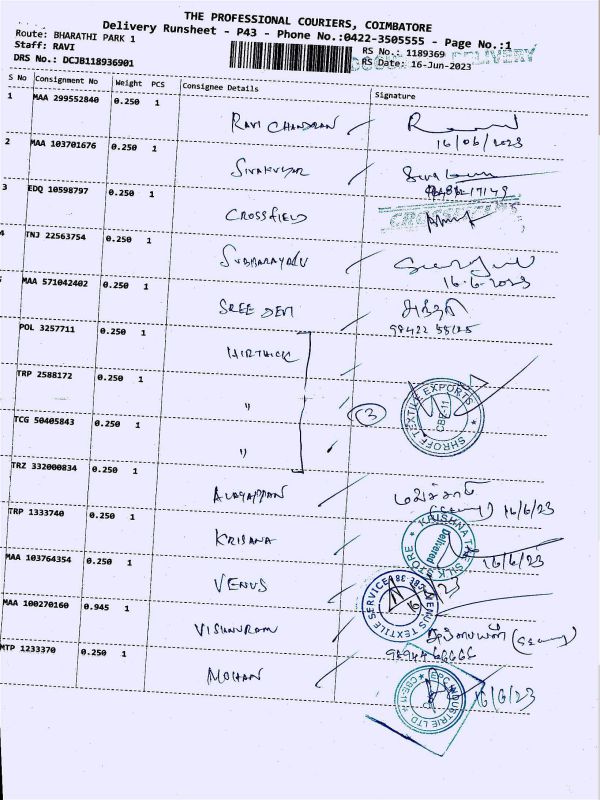 THE PROFESSIONAL COURIERS, COIMBATORE
Delivery Runsheet - P43 - Phone No.:0422-3505555 - Page No.:1
Route: BHARATHI PARK 1
Staff: RAVI
RS No.: 1189369
DRS No.: DCJB118936901
RS Date: 16-Jun-2023
DELIVERY
S No Consignment No Weight PCS Consignee Details Signature
1 MAA 299552840 0.250 1 RAVI CHANDRAN
16/06/2023
2 MAA 103701676 0.250 1 SIVAKUMAR
3 EDQ 10598797 0.250 1 CROSSFIELD
4 TNJ 22563754 0.250 1 SUBBARAYALU
16.6.2023
MAA 571042402 0.250 1 SREE DEVI
POL 3257711 0.250 1 HIRTHICK
TRP 2588172 0.250 1 "
3
SHROFF TEXTILE EXPORTS
CBE-11
TCG 50405843 0.250 1 "
TRZ 332000834 0.250 1
16/6/23
TRP 1333740 0.250 1 KRISHNA
KRISHNA SILK STORE
Delivered
16/6/23
MAA 103764354 0.250 1 VENUS
VENUS TEXTILE SERVICE
MAA 100270160 0.945 1 VISHNURAM
MTP 1233370 0.250 1 MOHAN
EPC INDUSTRIE LTD
16/6/23